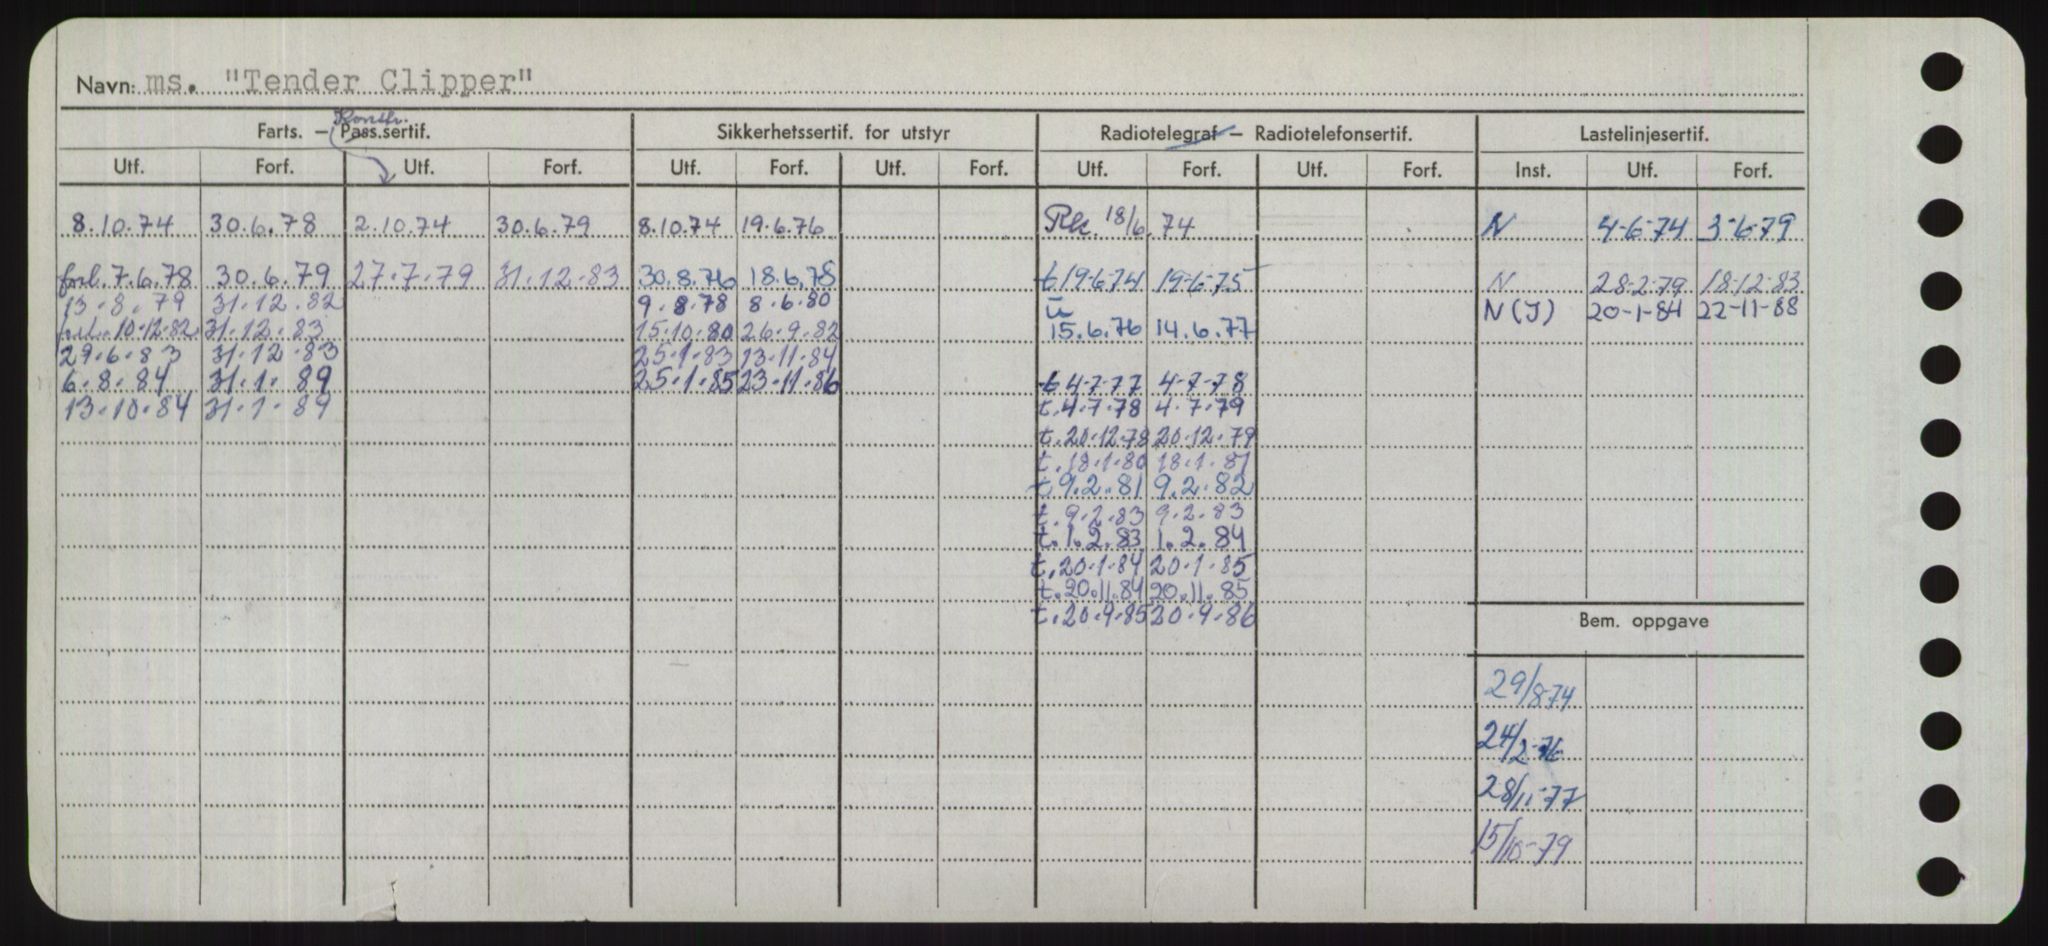 Navn: ms. "Tender Clipper"
Konstr.
Farts. — Pass.sertif. Sikkerhetssertif. for utstyr Radiotelegraf — Radiotelefonsertif. Lastelinjesertif.
Utf. Forf. Utf. Forf. Utf. Forf. Utf. Forf. Utf. Forf. Utf. Forf. Inst. Utf. Forf.
8.10.74 30.6.78 2.10.74 30.6.79 8.10.74 19.6.76 18/6.74 N 4-6-74 3-6-79
forl. 7.6.78 30.6.79 27.7.79 31.12.83 30.8.76 18.6.78 t 19-6-74 19-6-75 N 28-2-79 18-12-83
13.8.79 31.12.82 9.8.78 8.6.80 N(I) 20-1-84 22-11-88
forl. 10.12.82 31.12.83 15.10.80 26.9.82 15.6.76 14.6.77
29.6.83 31.12.83 25.1.83 23.11.84
6.8.84 31.1.89 25.1.85 23.11.86 t 4-7-77 4-7-78
13.10.84 31.1.89 t. 4.7.78 4.7.79
t. 20.12.78 20.12.79
t. 18.1.80 18.1.81
t 9.2.81 9.2.82
t. 9.2.83 9.2.83
t. 1.2.83 1.2.84
t. 20.1.84 20.1.85
t. 20.11.84 20.11.85
t. 20.9.85 20.9.86
Bem. oppgave
29/8-74
24/2-76
28/11-77
15/10-79